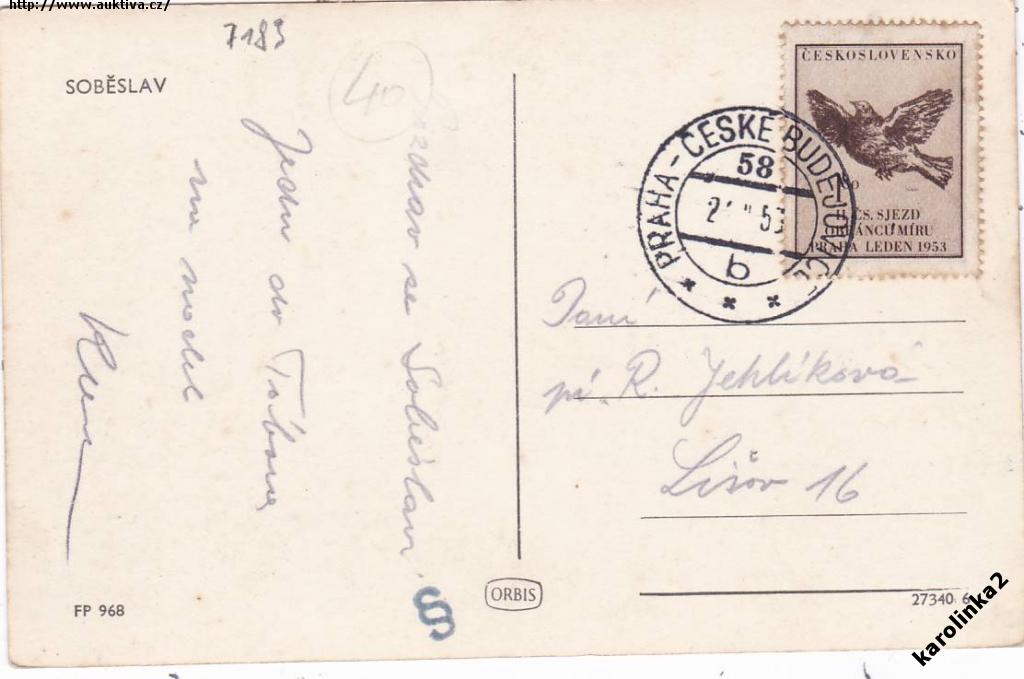 http://www.auktiva.cz/
7183
SOBĚSLAV
40
se Soběslavi
Jedu do Tábora
na
ČESKOSLOVENSKO
II. ČS. SJEZD
OBRÁNCŮ MÍRU
PRAHA LEDEN 1953
PRAHA - ČESKÉ BUDĚJOVICE
58
b
Paní
pí. R. Jehlíková
Lišov 16
FP 968
§
ORBIS
27340 6
karolinka2